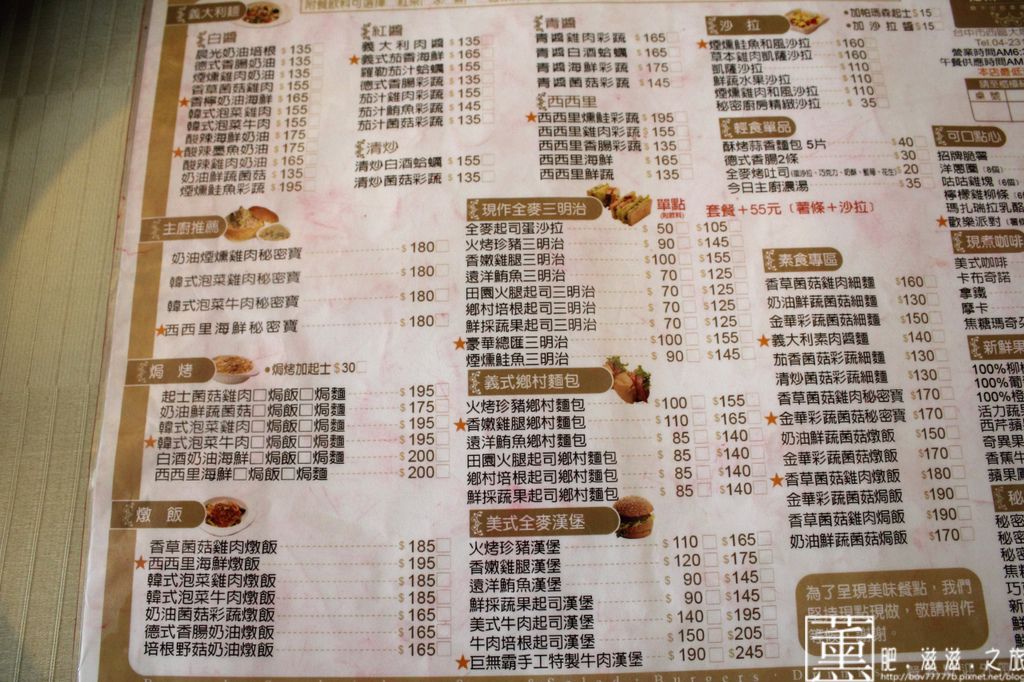 義大利麵
白醬
晨光奶油培根 $135
德式香腸奶油 $135
煙燻雞肉奶油 $135
香草菌菇雞肉 $155
★香檸奶油海鮮 $165
韓式泡菜雞肉 $155
韓式泡菜牛肉 $155
酸辣海鮮奶油 $175
★酸辣墨魚奶油 $175
酸辣雞肉奶油 $165
奶油鮮蔬菌菇 $135
煙燻鮭魚彩蔬 $195
紅醬
義大利肉醬 $135
★義式茄香海鮮 $165
羅勒茄汁蛤蠣 $155
德式香腸彩蔬 $135
茄汁雞肉彩蔬 $155
茄汁鮪魚彩蔬 $145
茄汁菌菇彩蔬 $135
清炒
清炒白酒蛤蠣 $155
清炒菌菇彩蔬 $135
青醬
青醬雞肉彩蔬 $165
青醬白酒蛤蠣 $165
青醬海鮮彩蔬 $175
青醬菌菇彩蔬 $145
西西里
★西西里燻鮭彩蔬 $195
西西里雞肉彩蔬 $155
西西里香腸彩蔬 $135
西西里海鮮 $165
西西里彩蔬 $135
沙拉
•加帕瑪森起士$15
•加沙拉醬$15
★煙燻鮭魚和風沙拉 $160
草本雞肉凱薩沙拉 $160
凱薩沙拉 $110
鮮蔬水果沙拉 $110
煙燻雞肉和風沙拉 $110
秘密廚房精緻沙拉 $35
輕食單品
酥烤蒜香麵包 5片 $40
德式香腸2條 $30
全麥烤吐司 $20
今日主廚濃湯 $35
主廚推薦
奶油煙燻雞肉秘密寶 $180
韓式泡菜雞肉秘密寶 $180
韓式泡菜牛肉秘密寶 $180
★西西里海鮮秘密寶 $180
焗烤
•焗烤加起士$30
起士菌菇雞肉□焗飯□焗麵 $195
奶油鮮蔬菌菇□焗飯□焗麵 $175
韓式泡菜雞肉□焗飯□焗麵 $195
★韓式泡菜牛肉□焗飯□焗麵 $195
白酒奶油海鮮□焗飯□焗麵 $200
西西里海鮮□焗飯□焗麵 $200
燉飯
香草菌菇雞肉燉飯 $185
★西西里海鮮燉飯 $195
韓式泡菜雞肉燉飯 $185
韓式泡菜牛肉燉飯 $185
奶油菌菇彩蔬燉飯 $165
德式香腸奶油燉飯 $165
培根野菇奶油燉飯 $165
現作全麥三明治
單點
套餐+55元〔薯條+沙拉〕
全麥起司蛋沙拉 $50 $105
火烤珍豬三明治 $90 $145
香嫩雞腿三明治 $100 $155
遠洋鮪魚三明治 $70 $125
田園火腿起司三明治 $70 $125
鄉村培根起司三明治 $70 $125
鮮採蔬果起司三明治 $70 $125
★豪華總匯三明治 $100 $155
煙燻鮭魚三明治 $90 $145
義式鄉村麵包
火烤珍豬鄉村麵包 $100 $155
★香嫩雞腿鄉村麵包 $110 $165
遠洋鮪魚鄉村麵包 $85 $140
田園火腿起司鄉村麵包 $85 $140
鄉村培根起司鄉村麵包 $85 $140
鮮採蔬果起司鄉村麵包 $85 $140
美式全麥漢堡
火烤珍豬漢堡 $110 $165
香嫩雞腿漢堡 $120 $175
遠洋鮪魚漢堡 $90 $145
鮮採蔬果起司漢堡 $90 $145
美式牛肉起司漢堡 $140 $195
牛肉培根起司漢堡 $150 $205
★巨無霸手工特製牛肉漢堡 $190 $245
素食專區
香草菌菇雞肉細麵 $160
奶油鮮蔬菌菇細麵 $130
金華彩蔬菌菇細麵 $150
★義大利素肉醬麵 $140
茄香菌菇彩蔬細麵 $130
清炒菌菇彩蔬細麵 $130
香草菌菇雞肉秘密寶 $170
★金華彩蔬菌菇秘密寶 $170
奶油鮮蔬菌菇燉飯 $150
金華彩蔬菌菇燉飯 $170
★香草菌菇雞肉燉飯 $180
金華彩蔬菌菇焗飯 $190
香草菌菇雞肉焗飯 $190
奶油鮮蔬菌菇焗飯 $170
為了呈現美味餐點，我們
堅持現點現做，敬請稍作
台中市西區大
Tel.04-23
營業時間AM
午餐供應時間AM
本店最低
桌號
可口點心
招牌脆薯
洋蔥圈（8個）
咕咕雞塊（6個）
檸檬雞柳條（
瑪扎瑞拉乳酪
★歡樂派對
現煮咖啡
美式咖啡
卡布奇諾
拿鐵
摩卡
焦糖瑪奇朵
新鮮果
100%柳
100%葡
100%橙
活力蔬
西芹蘋
奇異果
香蕉牛
蘋果
秘
薰 肥.滋滋.之旅
http://bov77777b.pixnet.net/blog